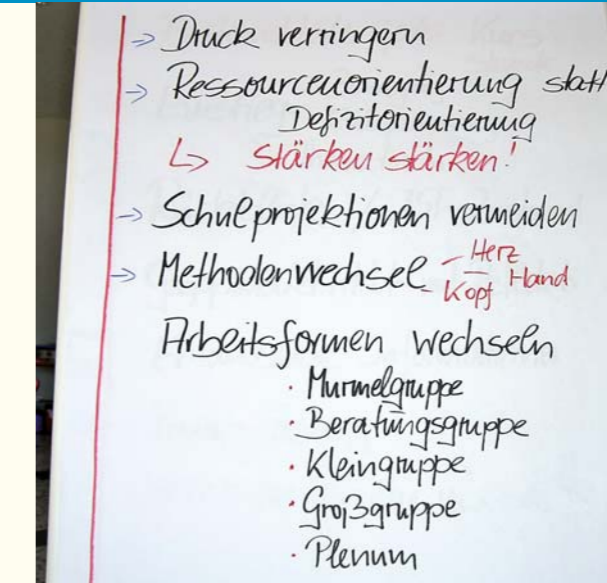 → Druck verringern
→ Ressourcenorientierung statt
Defizitorientierung
↳ Stärken stärken!
→ Schulprojektionen vermeiden
→ Methodenwechsel - Herz
- Kopf - Hand
Arbeitsformen wechseln
· Murmelgruppe
· Beratungsgruppe
· Kleingruppe
· Großgruppe
· Plenum